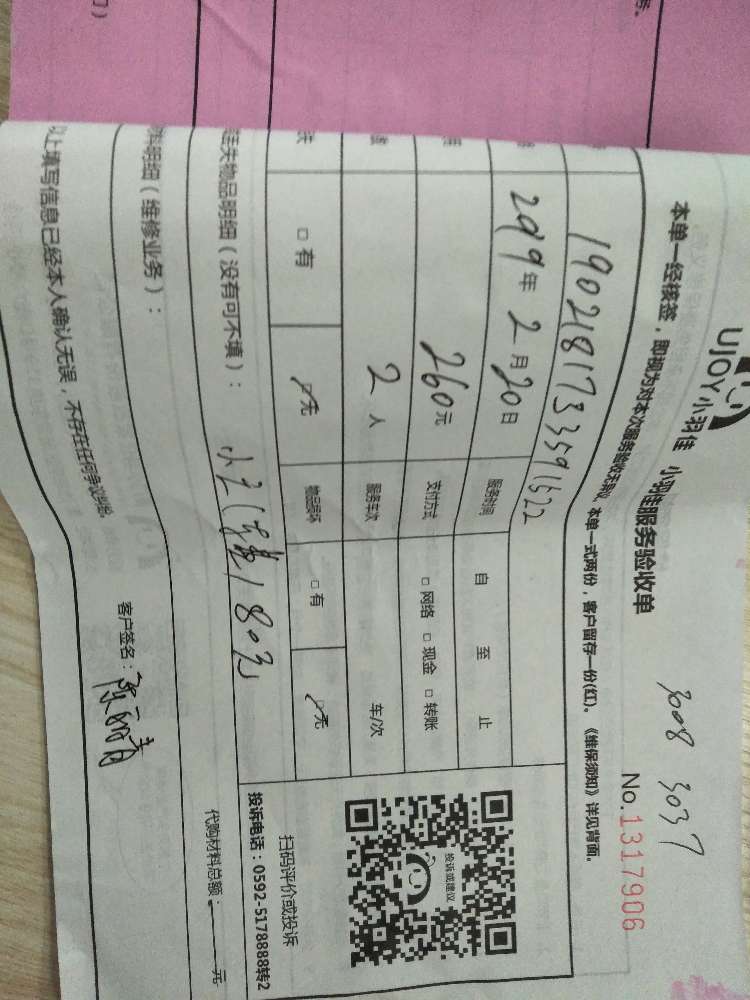 UJOY小羽佳 小羽佳服务验收单
3008 3037
No.1317906
本单一经核签，即视为对本次服务验收无异议。本单一式两份，客户留存一份(红)。《维保须知》详见背面。
1902181733591522
2019年2月20日 服务时间 自 至 止
260元 支付方式 □网络 □现金 □转账
2人 服务车次 车/次
□有 ☑无 物品损坏 □有 ☑无
遗失物品明细（没有可不填）：
180元
料明细（维修业务）：
代购材料总额： 元
以上填写信息已经本人确认无误，不存在任何争议纠纷。
客户签名：
投诉或建议
扫码评价或投诉
投诉电话：0592-5178888转2